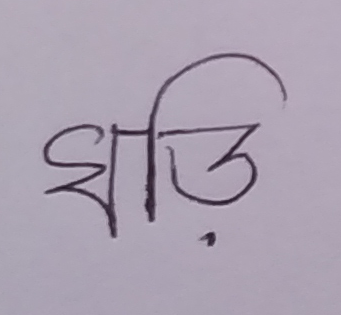 ঘড়ি